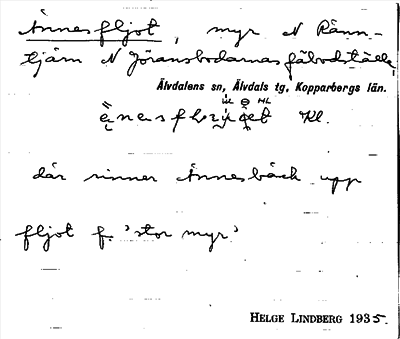 Ånnesfljot, myr N Pänn-
tjärn N Jöransbodarnas fäbodställe
Älvdalens sn, Älvdals tg, Kopparbergs län.
Kl.
där rinner Ånnesbäck upp
fljot f. 'stor myr'
HELGE LINDBERG 1935.